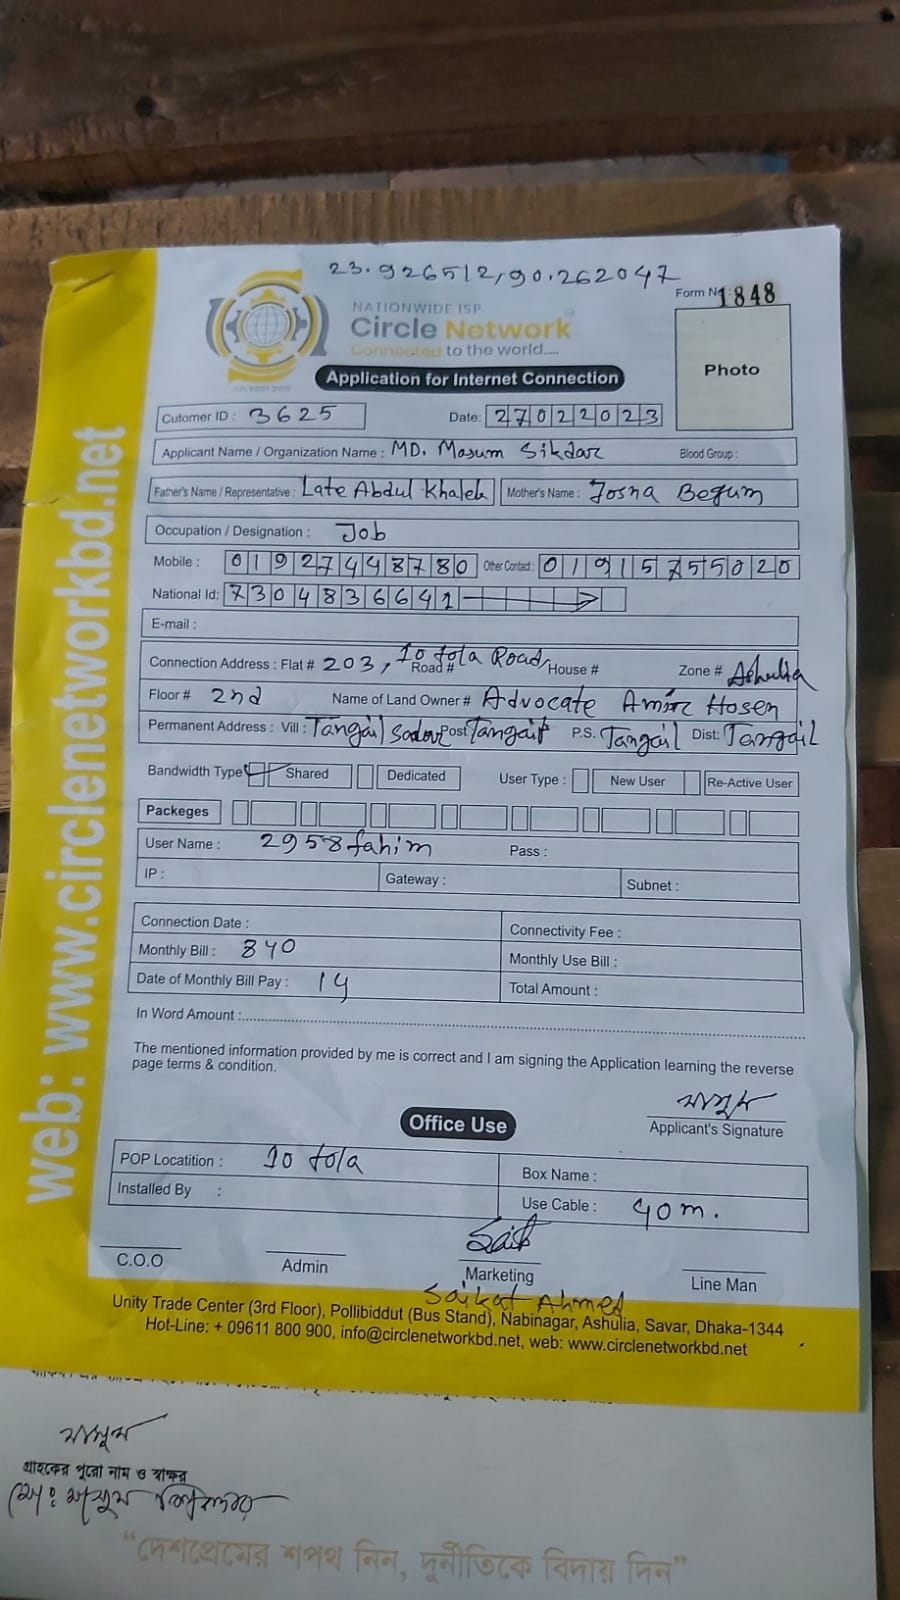 23.926512,90.262047
Form No: 1848
NATIONWIDE ISP
Circle Network
Connected to the world.....
Photo
Application for Internet Connection
Cutomer ID : 3625 Date: 27022023
Applicant Name / Organization Name : MD. Masum Sikdar Blood Group :
Father's Name / Representative : Late Abdul Khalek Mother's Name : Josna Begum
Occupation / Designation : Job
Mobile : 01927448780 Other Contact: 01915755020
National Id: 7304836641
E-mail :
Connection Address : Flat # 203, 10 tola Road, Road # House # Zone # Ashulia
Floor # 2nd Name of Land Owner # Advocate Amir Hosen
Permanent Address : Vill : Tangail Sador Post Tangail P.S. Tangail Dist: Tangail
Bandwidth Type Shared Dedicated User Type : New User Re-Active User
Packeges
User Name : 2958fahim Pass :
IP : Gateway : Subnet :
Connection Date : Connectivity Fee :
Monthly Bill : 840 Monthly Use Bill :
Date of Monthly Bill Pay : 14 Total Amount :
In Word Amount :
The mentioned information provided by me is correct and I am signing the Application learning the reverse
page terms & condition.
মাসুম
Office Use Applicant's Signature
POP Locatition : 10 tola Box Name :
Installed By : Use Cable : 40m.
C.O.O Admin Marketing Line Man
Saikat Ahmed
Unity Trade Center (3rd Floor), Pollibiddut (Bus Stand), Nabinagar, Ashulia, Savar, Dhaka-1344
Hot-Line: + 09611 800 900, info@circlenetworkbd.net, web: www.circlenetworkbd.net
web: www.circlenetworkbd.net
মাসুম
গ্রাহকের পুরো নাম ও স্বাক্ষর
মোঃ মাসুম সিকদার
“দেশপ্রেমের শপথ নিন, দুর্নীতিকে বিদায় দিন”